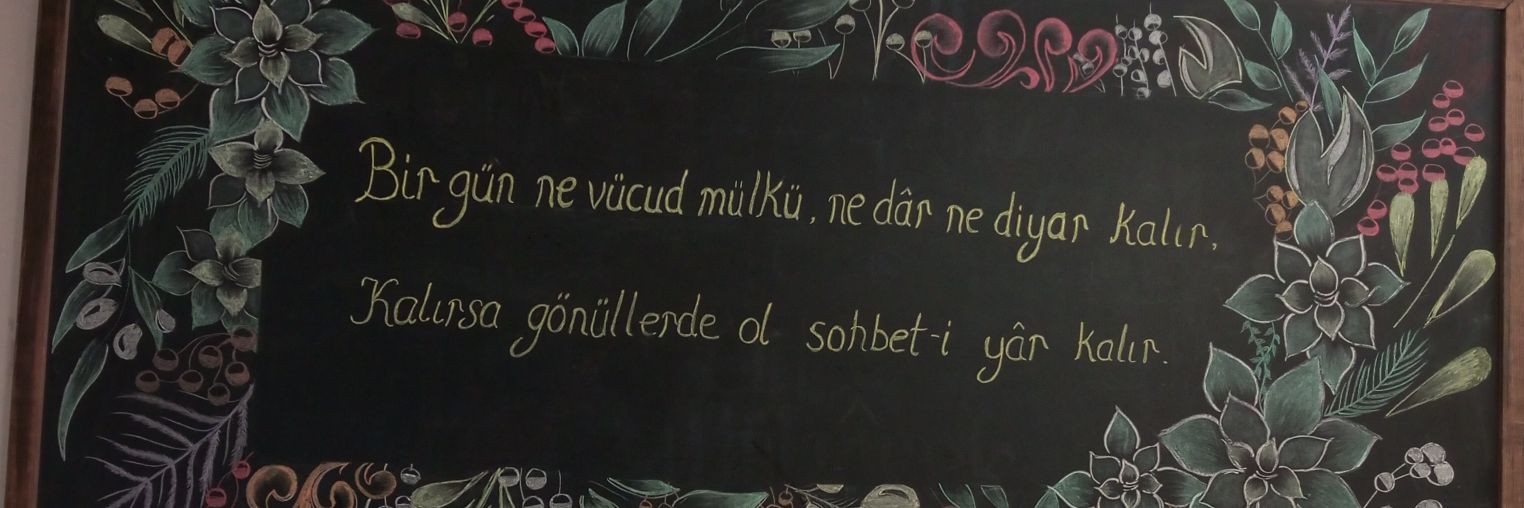 Bir gün ne vücud mülkü, ne dâr ne diyar kalır,
Kalırsa gönüllerde ol sohbet-i yâr kalır.